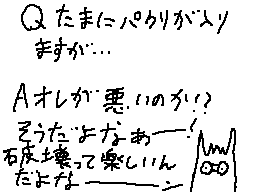 Q たまにパクリが入り
ますが…
A オレが悪いのか!?
そうだよなぁー
石皮壊って楽しいん
だよなー